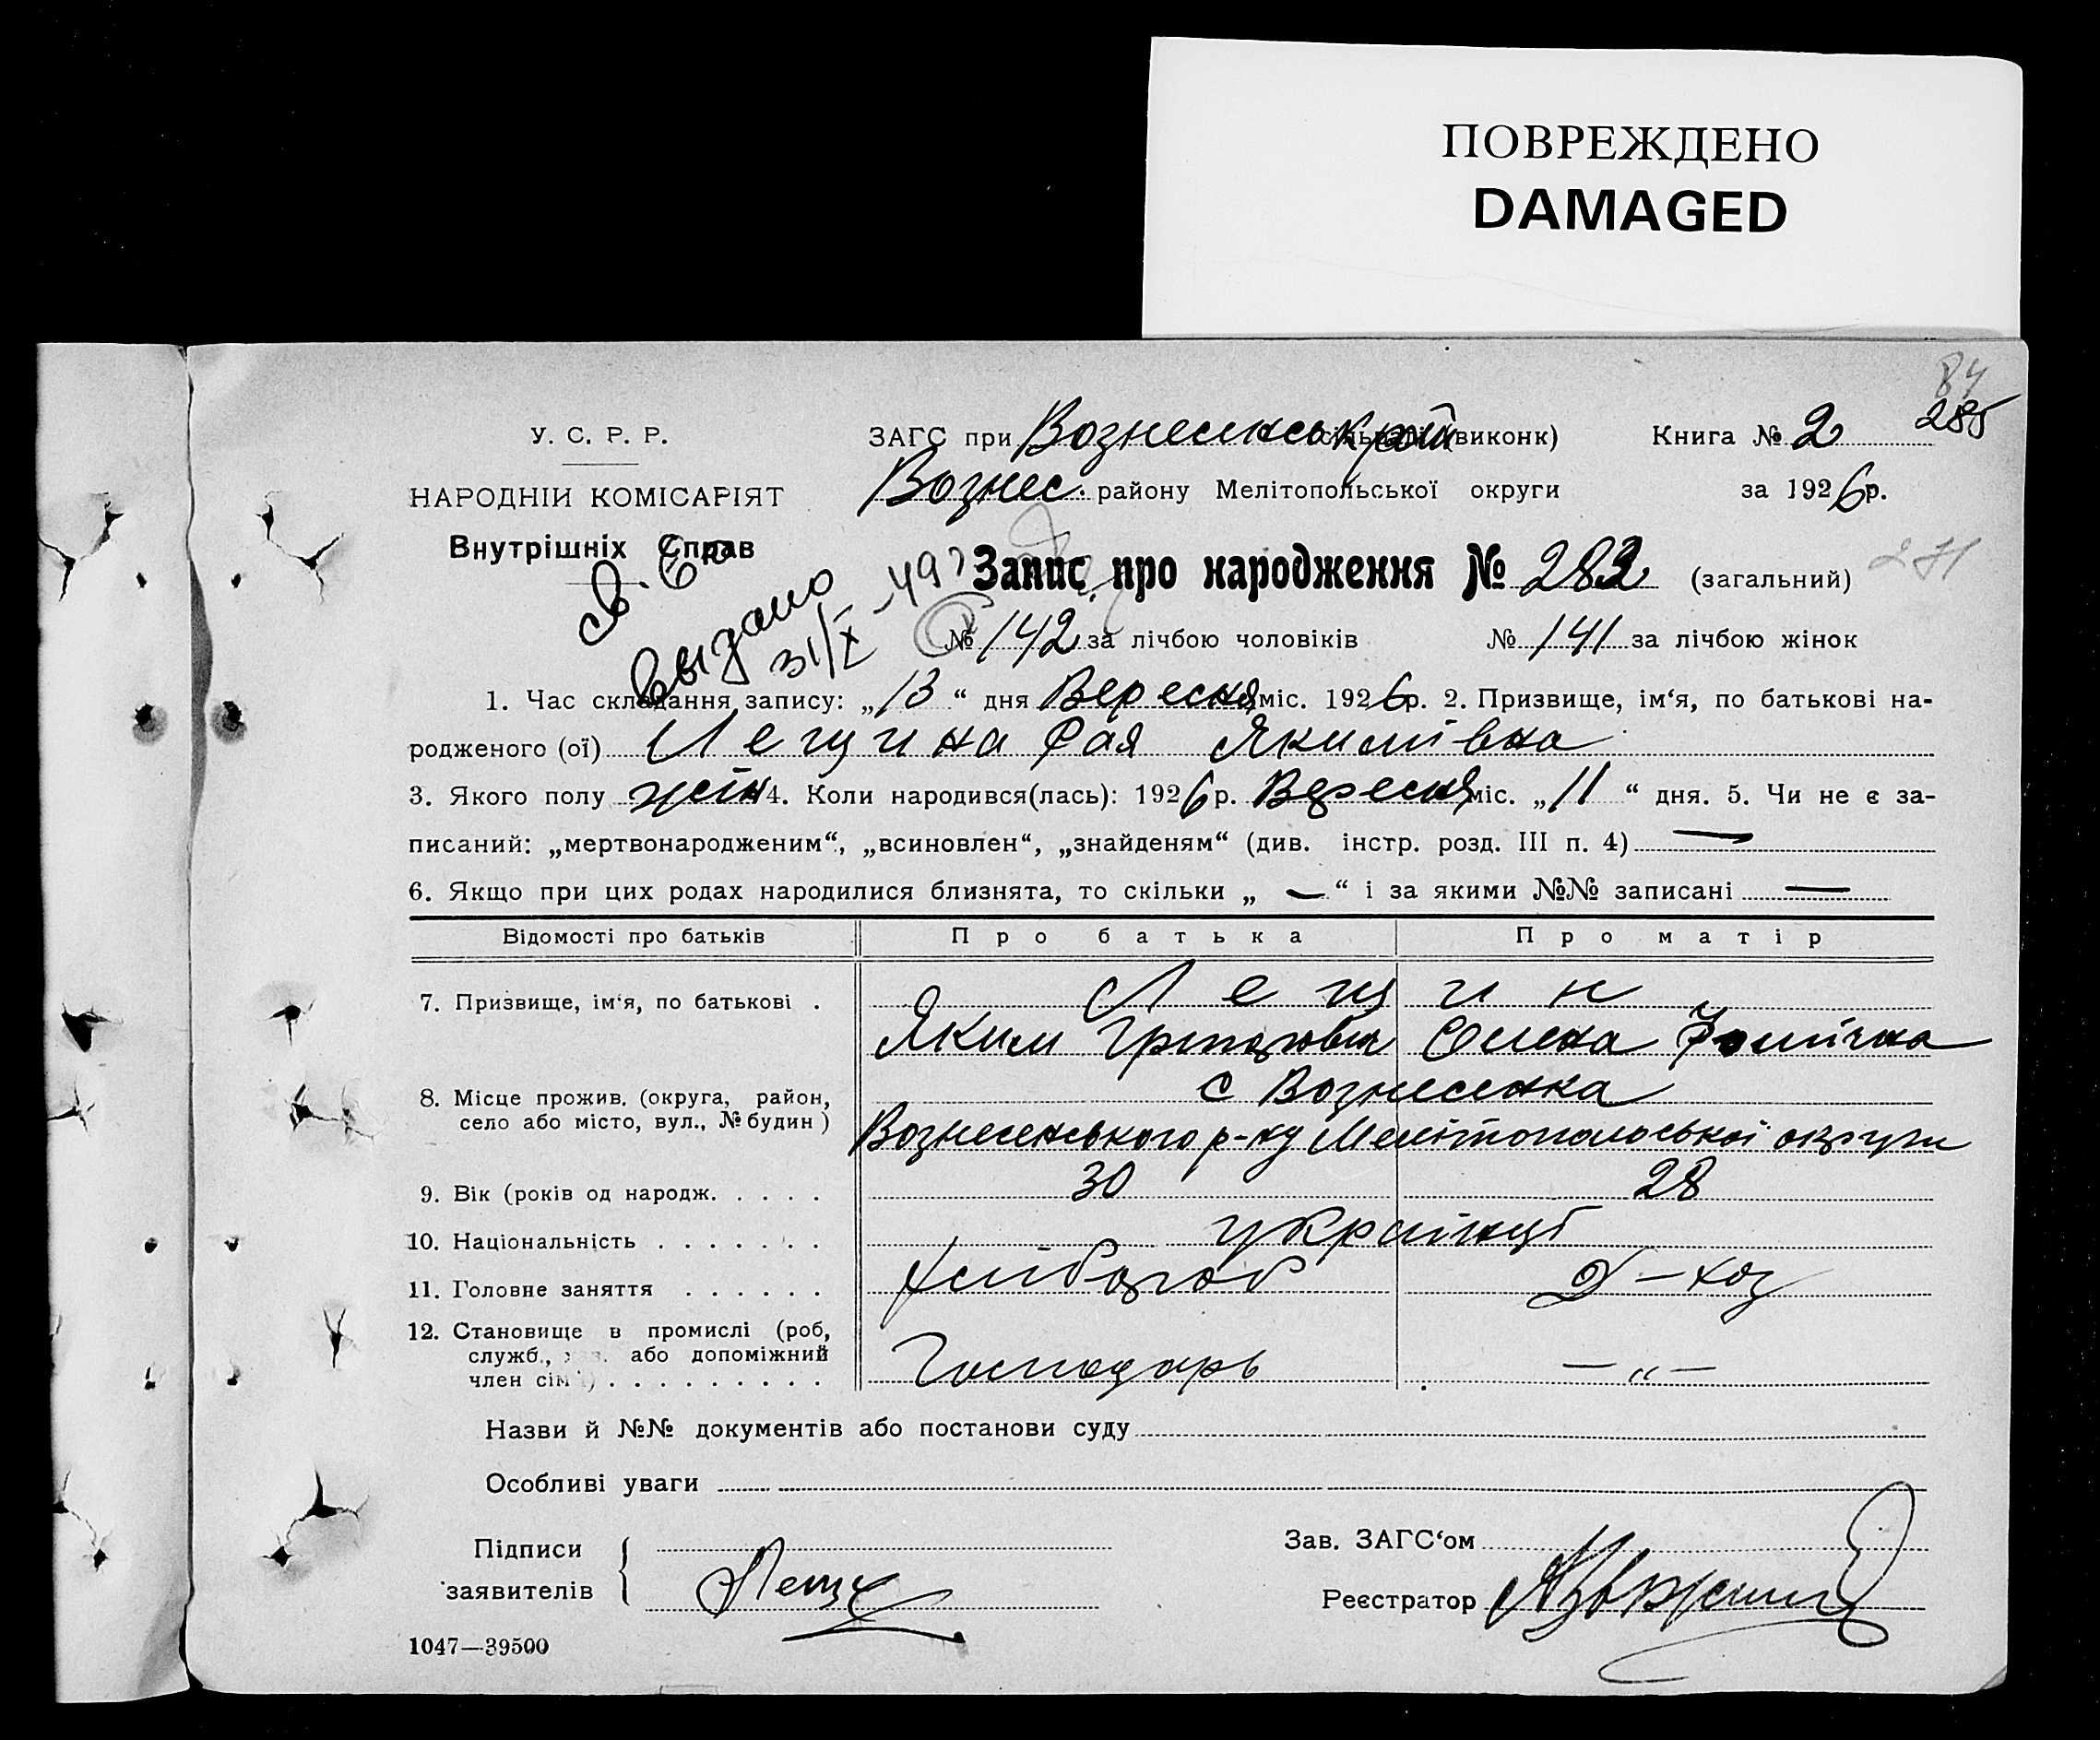 ПОВРЕЖДЕНО
DAMAGED
84
285
У. С. Р. Р.
НАРОДНІЙ КОМІСАРІЯТ
Внутрішніх Справ
ЗАГС при Вознесенськ рай (виконк)
Книга № 2
Вознес. району Мелітопольської округи
за 1926 р.
Св. Ео
выдано
31/X-49
Запис про народження № 283 (загальний)
271
№ 142 за лічбою чоловіків
№ 141 за лічбою жінок
1. Час складання запису: „13“ дня Вересня міс. 1926 р. 2. Призвище, ім‘я, по батькові на-
родженого (ої) Лещина Фая Якимівна
3. Якого полу жін 4. Коли народився(лась): 1926 р. Вересня міс. „11“ дня. 5. Чи не є за-
писаний: „мертвонародженим“, „всиновлен“, „знайденям“ (див. інстр. розд. III п. 4) —
6. Якщо при цих родах народилися близнята, то скільки „ — “ і за якими №№ записані —
Відомості про батьків
Про батька
Про матір
7. Призвище, ім‘я, по батькові .
Лещин
Яким Григорович
Олена Хомівна
8. Місце прожив. (округа, район,
село або місто, вул., № будин )
с Вознесенка
Вознесенського р-ну Мелітопольської округи
9. Вік (років од народж. . . . .
30
28
10. Національність . . . . . . .
українці
11. Головне заняття . . . . . .
хлібороб
Д-хоз
12. Становище в промислі (роб,
служб., або допоміжний
член сім ) . . . . . . . . .
Господарь
— „ —
Назви й №№ документів або постанови суду
Особливі уваги
Підписи
заявителів
Лещ
Зав. ЗАГС‘ом
Реєстратор
1047—39500